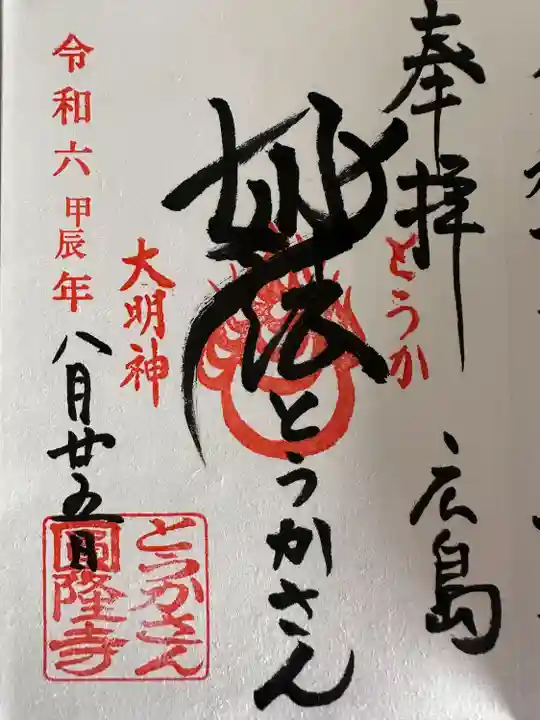 奉拝
とうか
広島
妙法
とうかさん
大明神
令和六甲辰年八月廿五日
とうかさん
圓隆寺